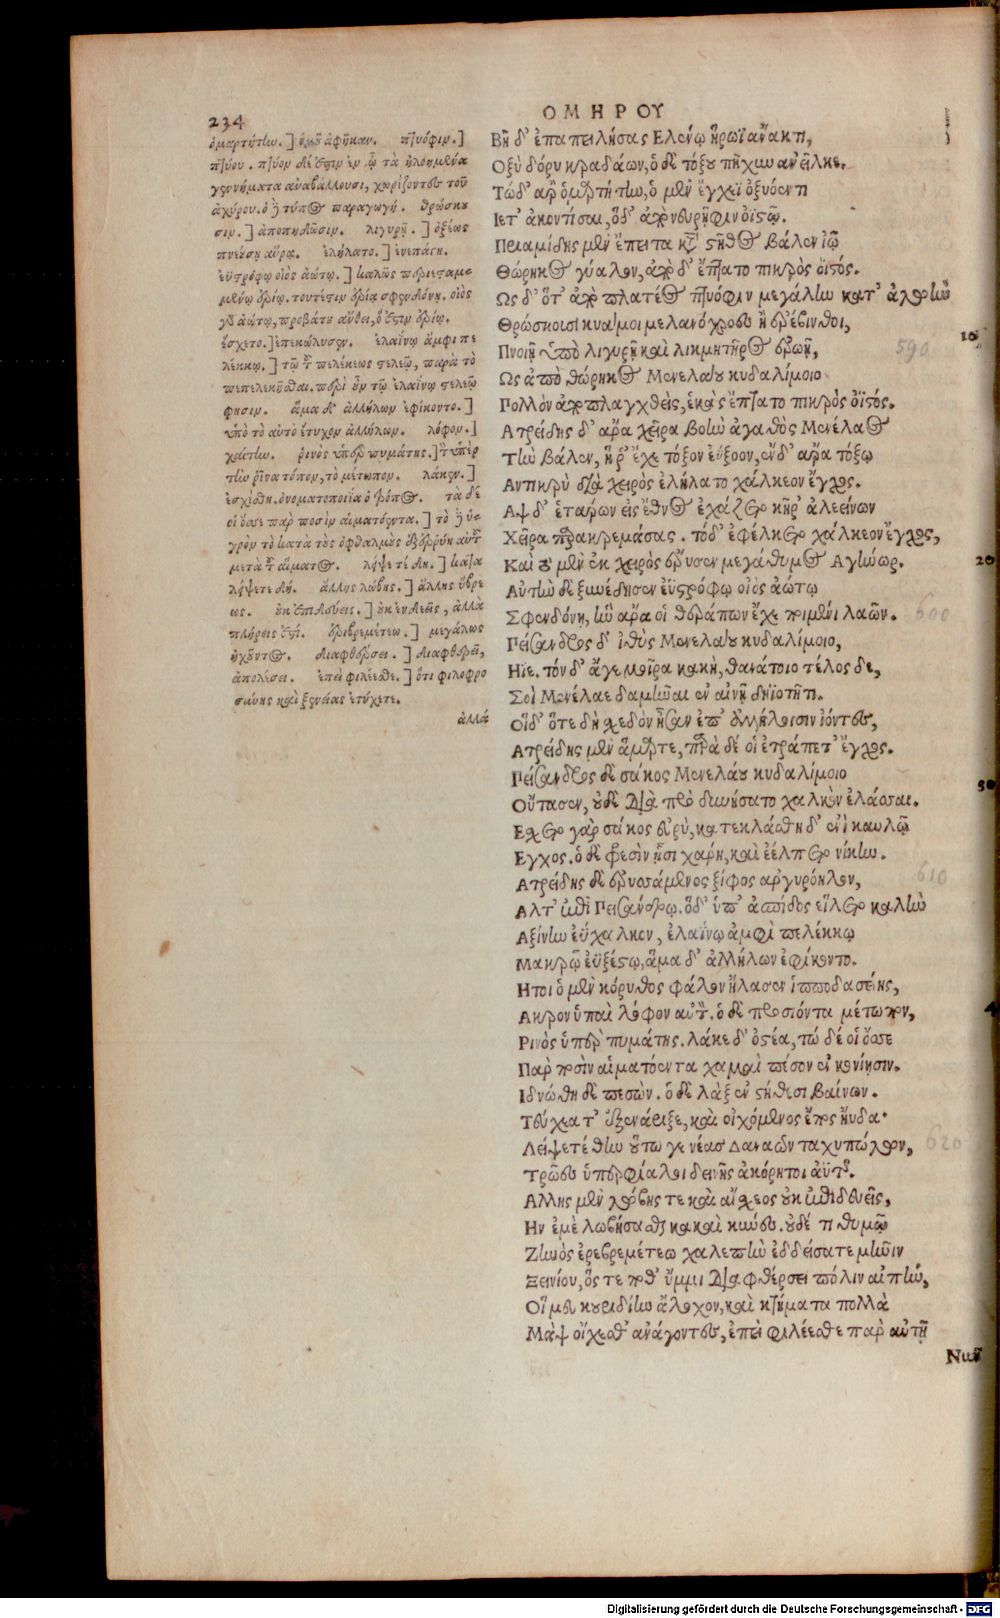 234
ΟΜΗΡΟΥ
ὁμαρτήτην.] ὁμοῦ ἀφῆκαν. πτυόφιν.]
πτύου. πτύον δέ ἐστιν ἐν ᾧ τὰ ἠλοημένα
γεννήματα ἀναβάλλουσι, χωρίζοντες τοῦ
ἀχύρου. ὁ ἢ τύπος παραγωγή. θρώσκου
σιν.] ἀποπηδῶσιν. λιγυρῇ.] ὀξέως
πνεύσῃ αὔρᾳ. ἐλήλατο.] ἐνεπάγη.
ἐϋστρόφῳ οἰὸς ἀώτῳ.] καλῶς περιεσταμ-
μένῳ ἐρίῳ. τουτέστιν ἐρίᾳ σφενδόνῃ. οἰὸς
γὰρ ἀώτῳ, προβάτου ἄνθει, ὅ ἐστιν ἐρίῳ.
ἔσχετο.] ἐπεκώλυσεν. ἐλαΐνῳ ἀμφὶ πε
λέκκῳ.] τῷ τοῦ πελέκεως στελεῷ, παρὰ τὸ
πεπελεκῆσθαι. περὶ οὖν τῷ ἐλαΐνῳ στελεῷ
φησιν. ἅμα δ' ἀλλήλων ἐφίκοντο.]
ὑπὸ τὸ αὐτὸ ἔτυχον ἀλλήλων. λόφον.]
χαίτην. ῥινὸς ὑπὲρ πυμάτης.] τὸ ὑπὲρ
τὴν ῥῖνα τόπον, τὸ μέτωπον. λάκεν.]
ἐσχίσθη. ὀνοματοποιΐα ὁ τρόπος. τὼ δέ
οἱ ὄσσε παρ ποσὶν αἱματόεντα.] τὸ ἢ ὑ-
γρὸν τὸ κατὰ τοὺς ὀφθαλμοὺς ἐξερρύη αὐτοῦ
μετὰ τοῦ αἵματος. λείψετέ θην.] κατα
λείψετε δή. ἄλλης λώβης.] ἄλλης ὕβρε
ως. οὐκ ἐπιδευεῖς.] οὐκ ἐνδεεῖς, ἀλλὰ
πλήρεις ἐστέ. ἐριβρεμέτεω.] μεγάλως
ἠχοῦντος. διαφθέρσει.] διαφθερεῖ,
ἀπολέσει. ἐπεὶ φιλέεσθε.] ὅτι φιλοφρο
σύνης καὶ ξενίας ἐτύχετε.
ἀλλὰ
Βῆ δ' ἐπαπειλήσας Ελένῳ ἥρωϊ ἄνακτι,
Οξὺ δόρυ κραδάων, ὁ δὲ τόξου πῆχυν ἄνειλκε.
Τὼ δ' ἄρ' ὁμαρτήτην, ὁ μὲν ἔγχεϊ ὀξυόεντι
Ιετ' ἀκοντίσαι, ὁ δ' ἀπὸ νευρῆφιν ὀϊστῷ.
Πριαμίδης μὲν ἔπειτα κατὰ στῆθος βάλεν ἰῷ
Θώρηκος γύαλον, ἀπὸ δ' ἔπτατο πικρὸς ὀϊστός.
Ως δ' ὅτ' ἀπὸ πλατέος πτυόφιν μεγάλην κατ' ἀλωὴν
10
Θρώσκοισι κύαμοι μελανόχροες ἢ ἐρέβινθοι,
590
Πνοιῇ ὑπὸ λιγυρῇ καὶ λικμητῆρος ἐρωῇ,
Ως ἀπὸ θώρηκος Μενελάου κυδαλίμοιο
Πολλὸν ἀποπλαγχθεὶς, ἑκὰς ἔπτατο πικρὸς ὀϊστός.
Ατρείδης δ' ἄρα χεῖρα βοὴν ἀγαθὸς Μενέλαος
Τὴν βάλεν, ᾗ ῥ' ἔχε τόξον ἐΰξοον, ἐν δ' ἄρα τόξῳ
Αντικρὺ διὰ χειρὸς ἐλήλατο χάλκεον ἔγχος.
Αψ δ' ἑτάρων εἰς ἔθνος ἐχάζετο κῆρ' ἀλεείνων
Χεῖρα παρακρεμάσας. τόδ' ἐφέλκετο χάλκεον ἔγχος,
20
Καὶ τὸ μὲν ἐκ χειρὸς ἔρυσεν μεγάθυμος Αγήνωρ.
Αὐτὴν δὲ ξυνέδησεν ἐϋστρόφῳ οἰὸς ἀώτῳ
600
Σφενδόνῃ, ἣν ἄρα οἱ θεράπων ἔχε ποιμένι λαῶν.
Πείσανδρος δ' ἰθὺς Μενελάου κυδαλίμοιο,
Ηϊε. τὸν δ' ἄγε μοῖρα κακὴ, θανάτοιο τέλος δε,
Σοὶ Μενέλαε δαμῆναι ἐν αἰνῇ δηϊοτῆτι.
Οἱ δ' ὅτε δὴ σχεδὸν ἦσαν ἐπ' ἀλλήλοισιν ἰόντες,
Ατρείδης μὲν ἅμαρτε, παρὰ δέ οἱ ἐτράπετ' ἔγχος.
30
Πείσανδρος δὲ σάκος Μενελάου κυδαλίμοιο
Οὔτασεν, οὐδὲ διὰ πρὸ δυνήσατο χαλκὸν ἐλάσσαι.
Εσχετο γὰρ σάκος εὐρὺ, κατεκλάσθη δ' ἐνὶ καυλῷ
Εγχος. ὁ δὲ φρεσὶν ᾗσι χάρη, καὶ ἐέλπετο νίκην.
610
Ατρείδης δὲ ἐρυσσάμενος ξίφος ἀργυρόηλον,
Αλτ' ἐπὶ Πεισάνδρῳ. ὁ δ' ὑπ' ἀσπίδος εἵλετο καλὴν
Αξίνην εὔχαλκον, ἐλαΐνῳ ἀμφὶ πελέκκῳ
Μακρῷ ἐϋξέστῳ, ἅμα δ' ἀλλήλων ἐφίκοντο.
Ητοι ὁ μὲν κόρυθος φάλον ἤλασεν ἱπποδασείης,
Ακρον ὑπαὶ λόφον αὐτοῦ. ὁ δὲ προσιόντα μέτωπον,
Ρινὸς ὑπὲρ πυμάτης. λάκε δ' ὀστέα, τὼ δέ οἱ ὄσσε
Παρ ποσὶν αἱματόεντα χαμαὶ πέσον ἐν κονίῃσιν.
Ιδνώθη δὲ πεσών. ὁ δὲ λὰξ ἐν στήθεσι βαίνων.
Τεύχεά τ' ἐξενάριξε, καὶ εὐχόμενος ἔπος ηὔδα·
Λείψετέ θην οὕτω γε νέας Δαναῶν ταχυπώλων,
620
Τρῶες ὑπερφίαλοι δεινῆς ἀκόρητοι ἀϋτῆς.
Αλλης μὲν λώβης τε καὶ αἴσχεος οὐκ ἐπιδευεῖς,
Ην ἐμὲ λωβήσασθε κακαὶ κύνες. οὐδέ τι θυμῷ
Ζηνὸς ἐριβρεμέτεω χαλεπὴν ἐδδείσατε μῆνιν
Ξεινίου, ὅς τε ποθ' ὔμμι διαφθέρσει πόλιν αἰπὴν,
Οἵ μευ κουριδίην ἄλοχον, καὶ κτήματα πολλὰ
Μὰψ οἴχεσθ' ἀνάγοντες, ἐπεὶ φιλέεσθε παρ αὐτῇ
Νῦν
Digitalisierung gefördert durch die Deutsche Forschungsgemeinschaft - DFG